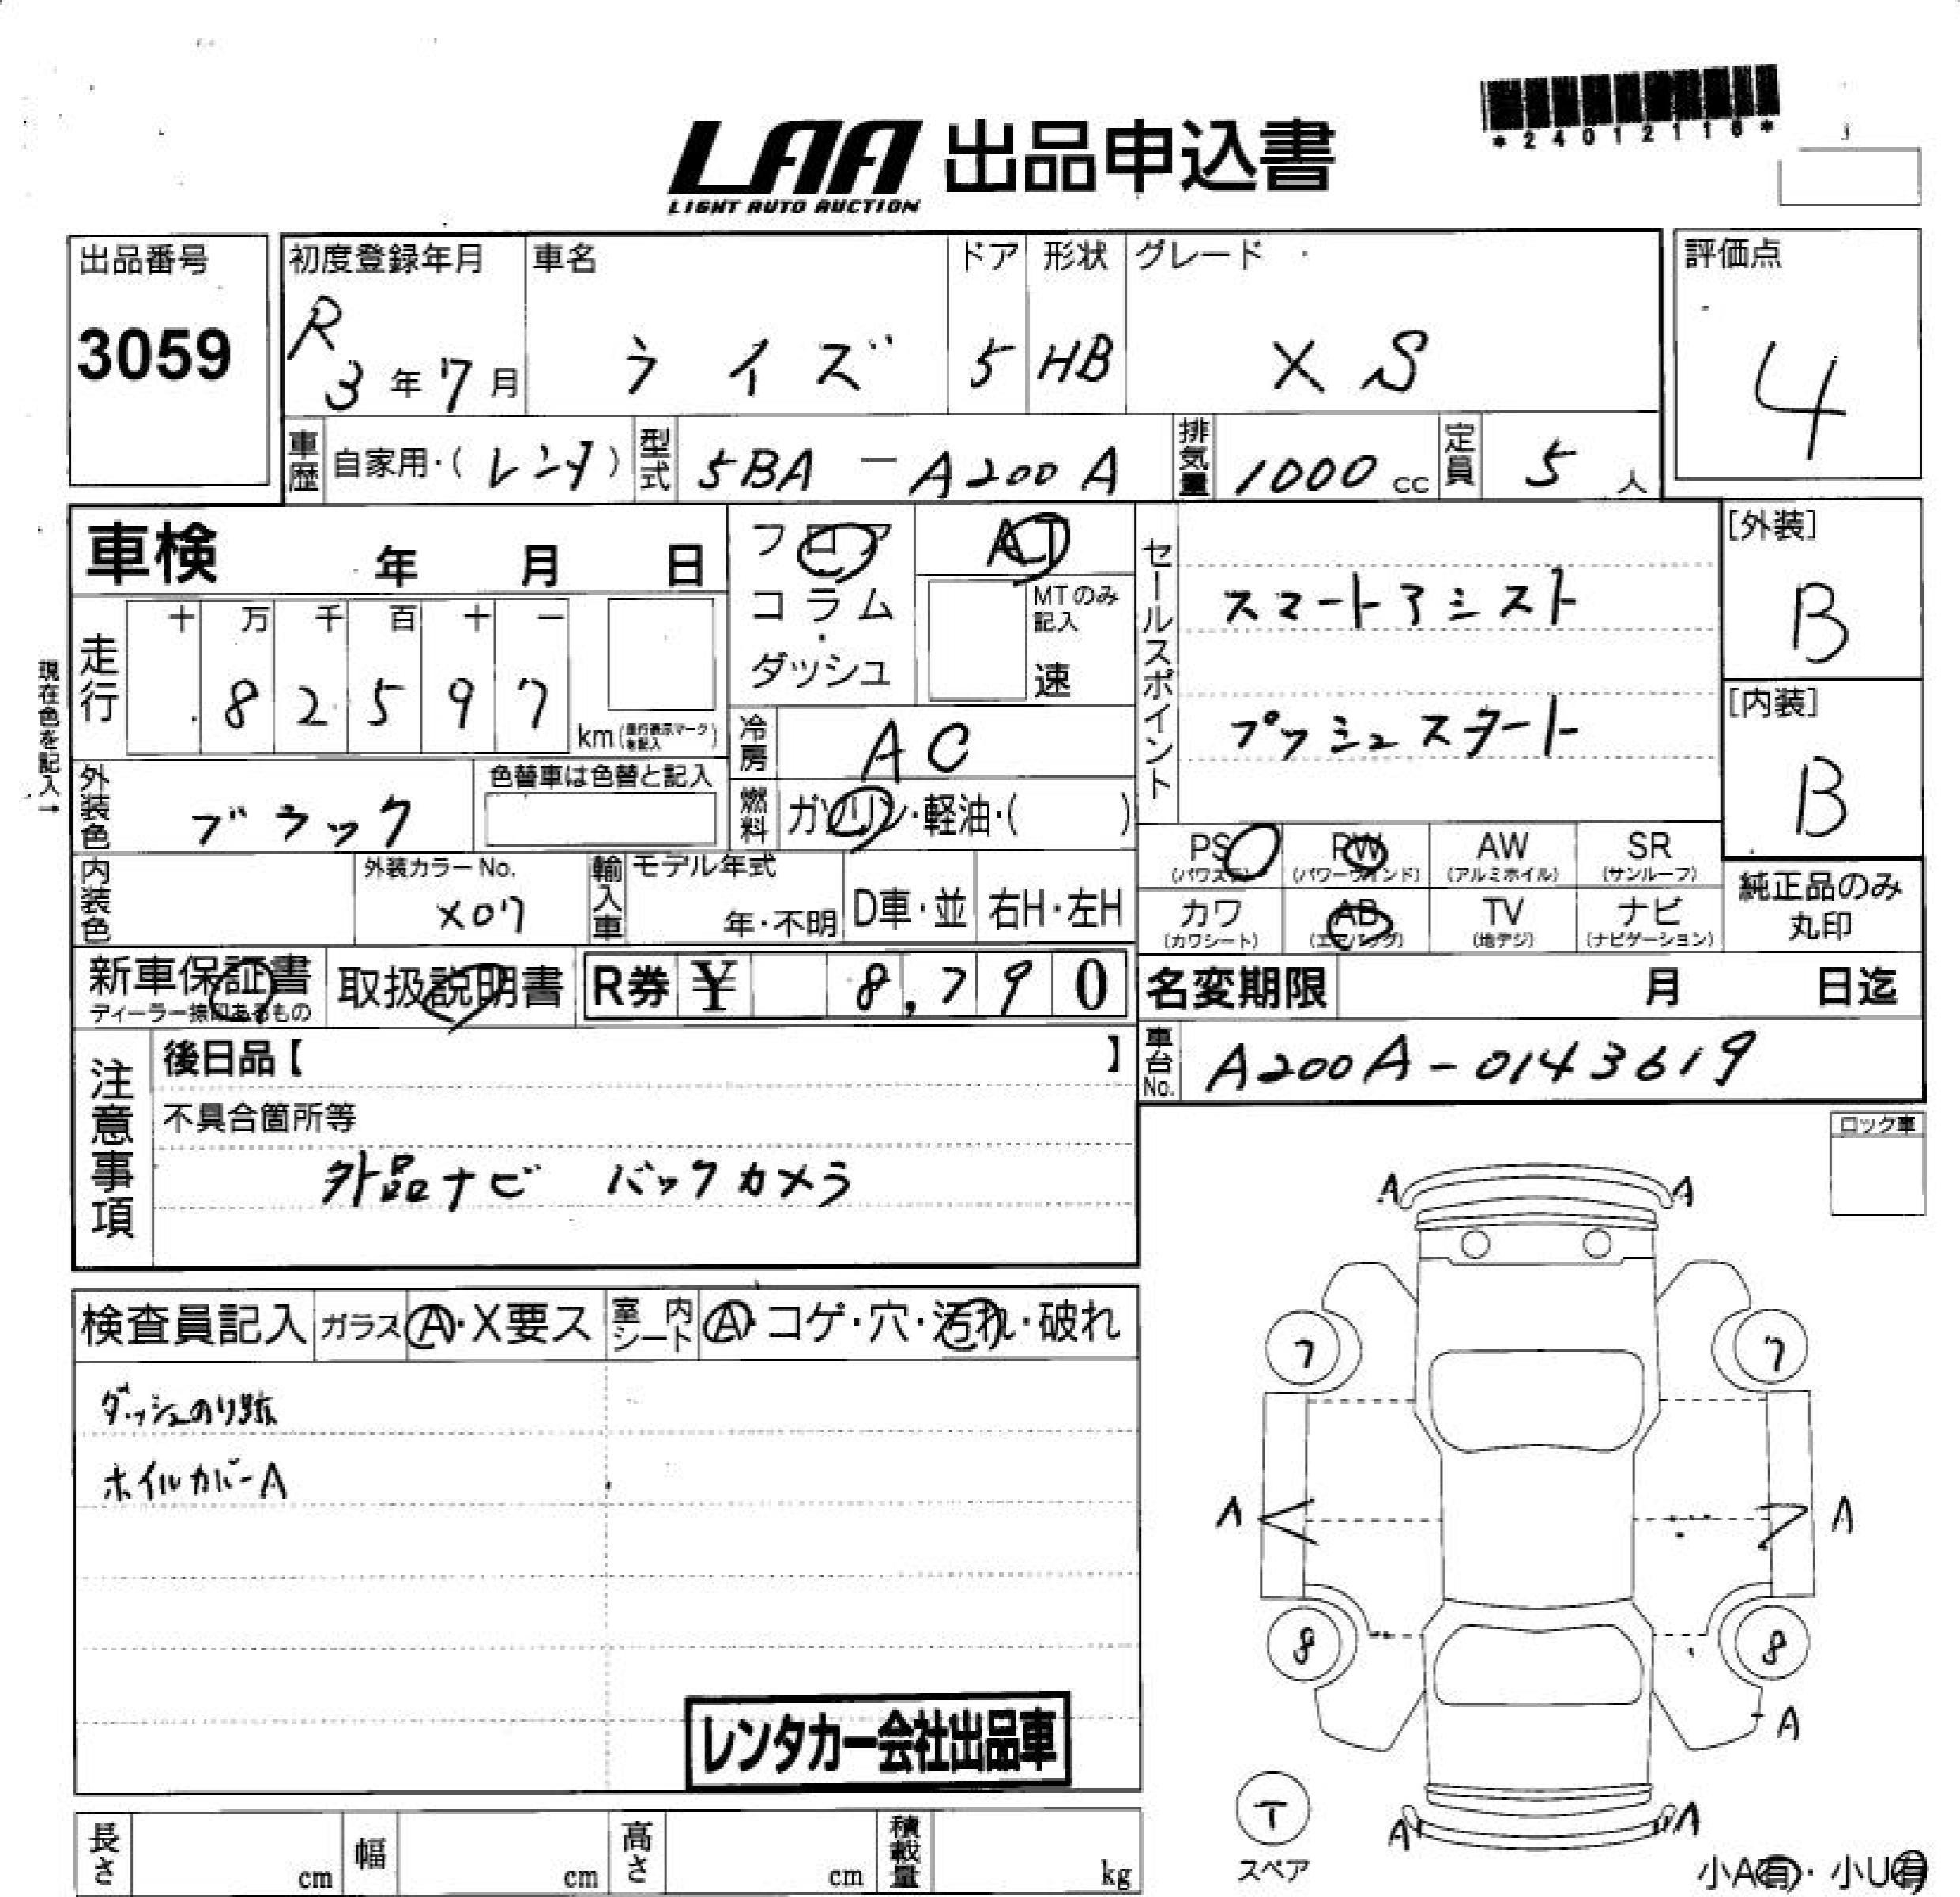 *24012116*
LAA 出品申込書
LIGHT AUTO AUCTION
出品番号
3059
初度登録年月
R
3年7月
車名
ライズ
ドア
5
形状
HB
グレード
XS
評価点
4
車歴
自家用・(レンタ)
型式
5BA-A200A
排気量
1000cc
定員
5人
車検 年 月 日
フロア
コラム
ダッシュ
AT
MTのみ
記入
速
セールスポイント
スマートアシスト
プッシュスタート
[外装]
B
[内装]
B
現在色を記入→
走行
十 万 千 百 十 一
8 2 5 9 7
km(走行表示マークを記入)
冷房
AC
外装色
ブラック
色替車は色替と記入
燃料
ガソリン・軽油・( )
PS
(パワステ)
PW
(パワーウインド)
AW
(アルミホイル)
SR
(サンルーフ)
カワ
(カワシート)
AB
(エアバッグ)
TV
(地デジ)
ナビ
(ナビゲーション)
純正品のみ
丸印
内装色
外装カラーNo.
X07
輸入車
モデル年式
年・不明
D車・並
右H・左H
新車保証書
ディーラー捺印あるもの
取扱説明書
R券 ¥ 8,790
名変期限 月 日迄
車台No.
A200A-0143619
注意事項
後日品【 】
不具合箇所等
外品ナビ バックカメラ
ロック車
検査員記入
ガラス
A・X要ス
室内シート
A・コゲ・穴・汚れ・破れ
ダッシュのり跡
ホイルカバーA
レンタカー会社出品車
A A
7 7
A A
8 8
A
T
スペア
A A
小A有・小U有
長さ cm
幅 cm
高さ cm
積載量 kg